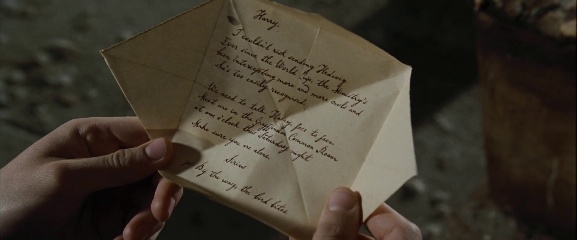 Harry,
I couldn't risk sending Hedwig.
Ever since the World Cup, the Ministry's
been intercepting more and more owls and
she's too easily recognised.
We need to talk, Harry, face to face.
Meet me in the Gryffindor Common Room
at one o'clock this Saturday night.
Make sure you're alone.
Sirius
By the way, the bird bites.